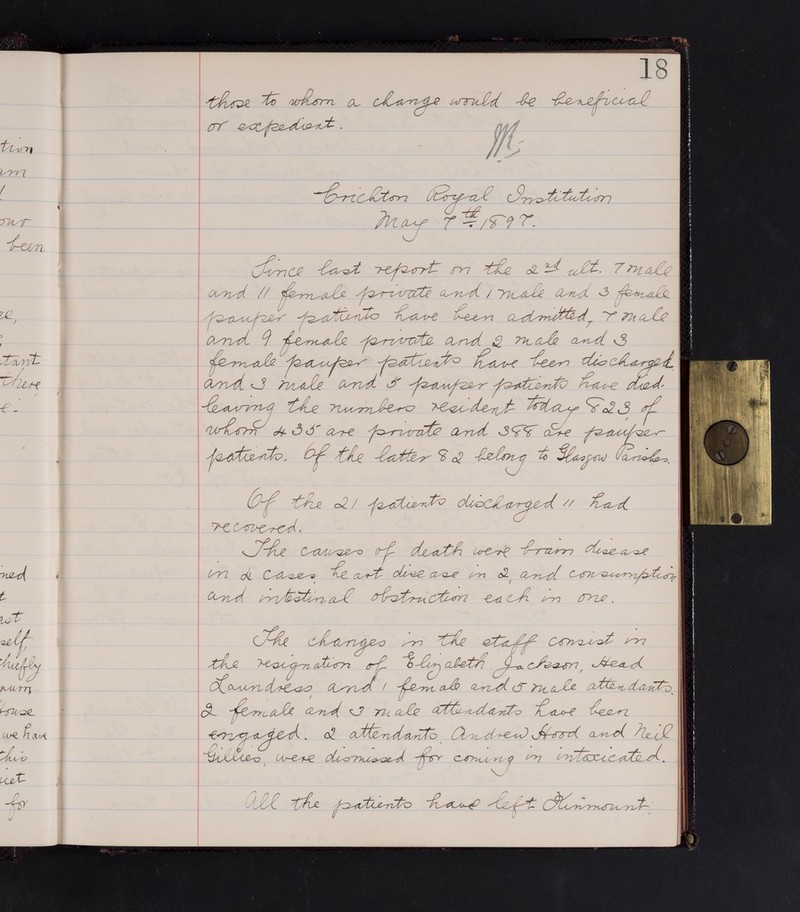 18
those to whom a change would be beneficial
or expedient.
Crichton Royal Institution
May 7th 1897.
Since last report on the 2nd ult. 7 male
and 11 female private and 1 male and 3 female
pauper patients have been admitted, 7 male
and 9 female private and 2 male and 3
female pauper patients have been discharged
and 3 male and 5 pauper patients have died
leaving the numbers resident today 823, of
whom 435 are private and 388 are pauper
patients. Of the latter 82 belong to Glasgow Parishes.
Of the 21 patients discharged 11 had
recovered.
The causes of death were brain disease
in 4 cases, heart disease in 2, and consumption
and intestinal obstruction each in one.
The changes in the staff consist in
the resignation of Elizabeth Jackson, Head
Laundress, and 1 female and 5 male attendants.
2 female and 3 male attendants have been
engaged. 2 attendants, Andrew Hood and Neil
Gillies, were dismissed for coming in intoxicated.
All the patients have left Kinmount,